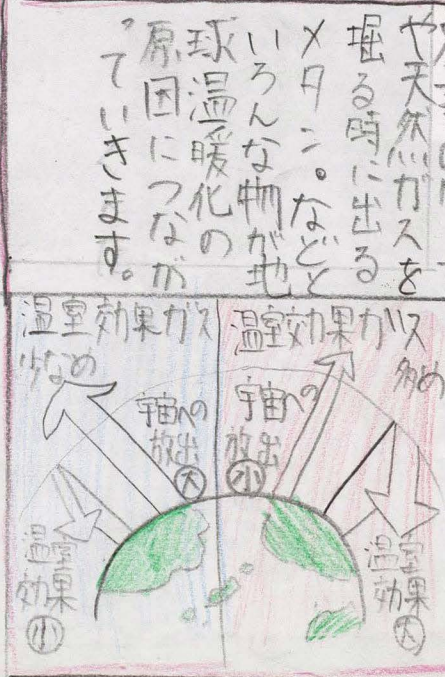 や天然ガスを
堀る時に出る
メタン。などと
いろんな物が地
球温暖化の
原因につなが
っていきます。
温室効果ガス
少なめ
宇宙への
放出
大
温室
効果
小
温室効果ガス
多め
宇宙への
放出
小
温室
効果
大